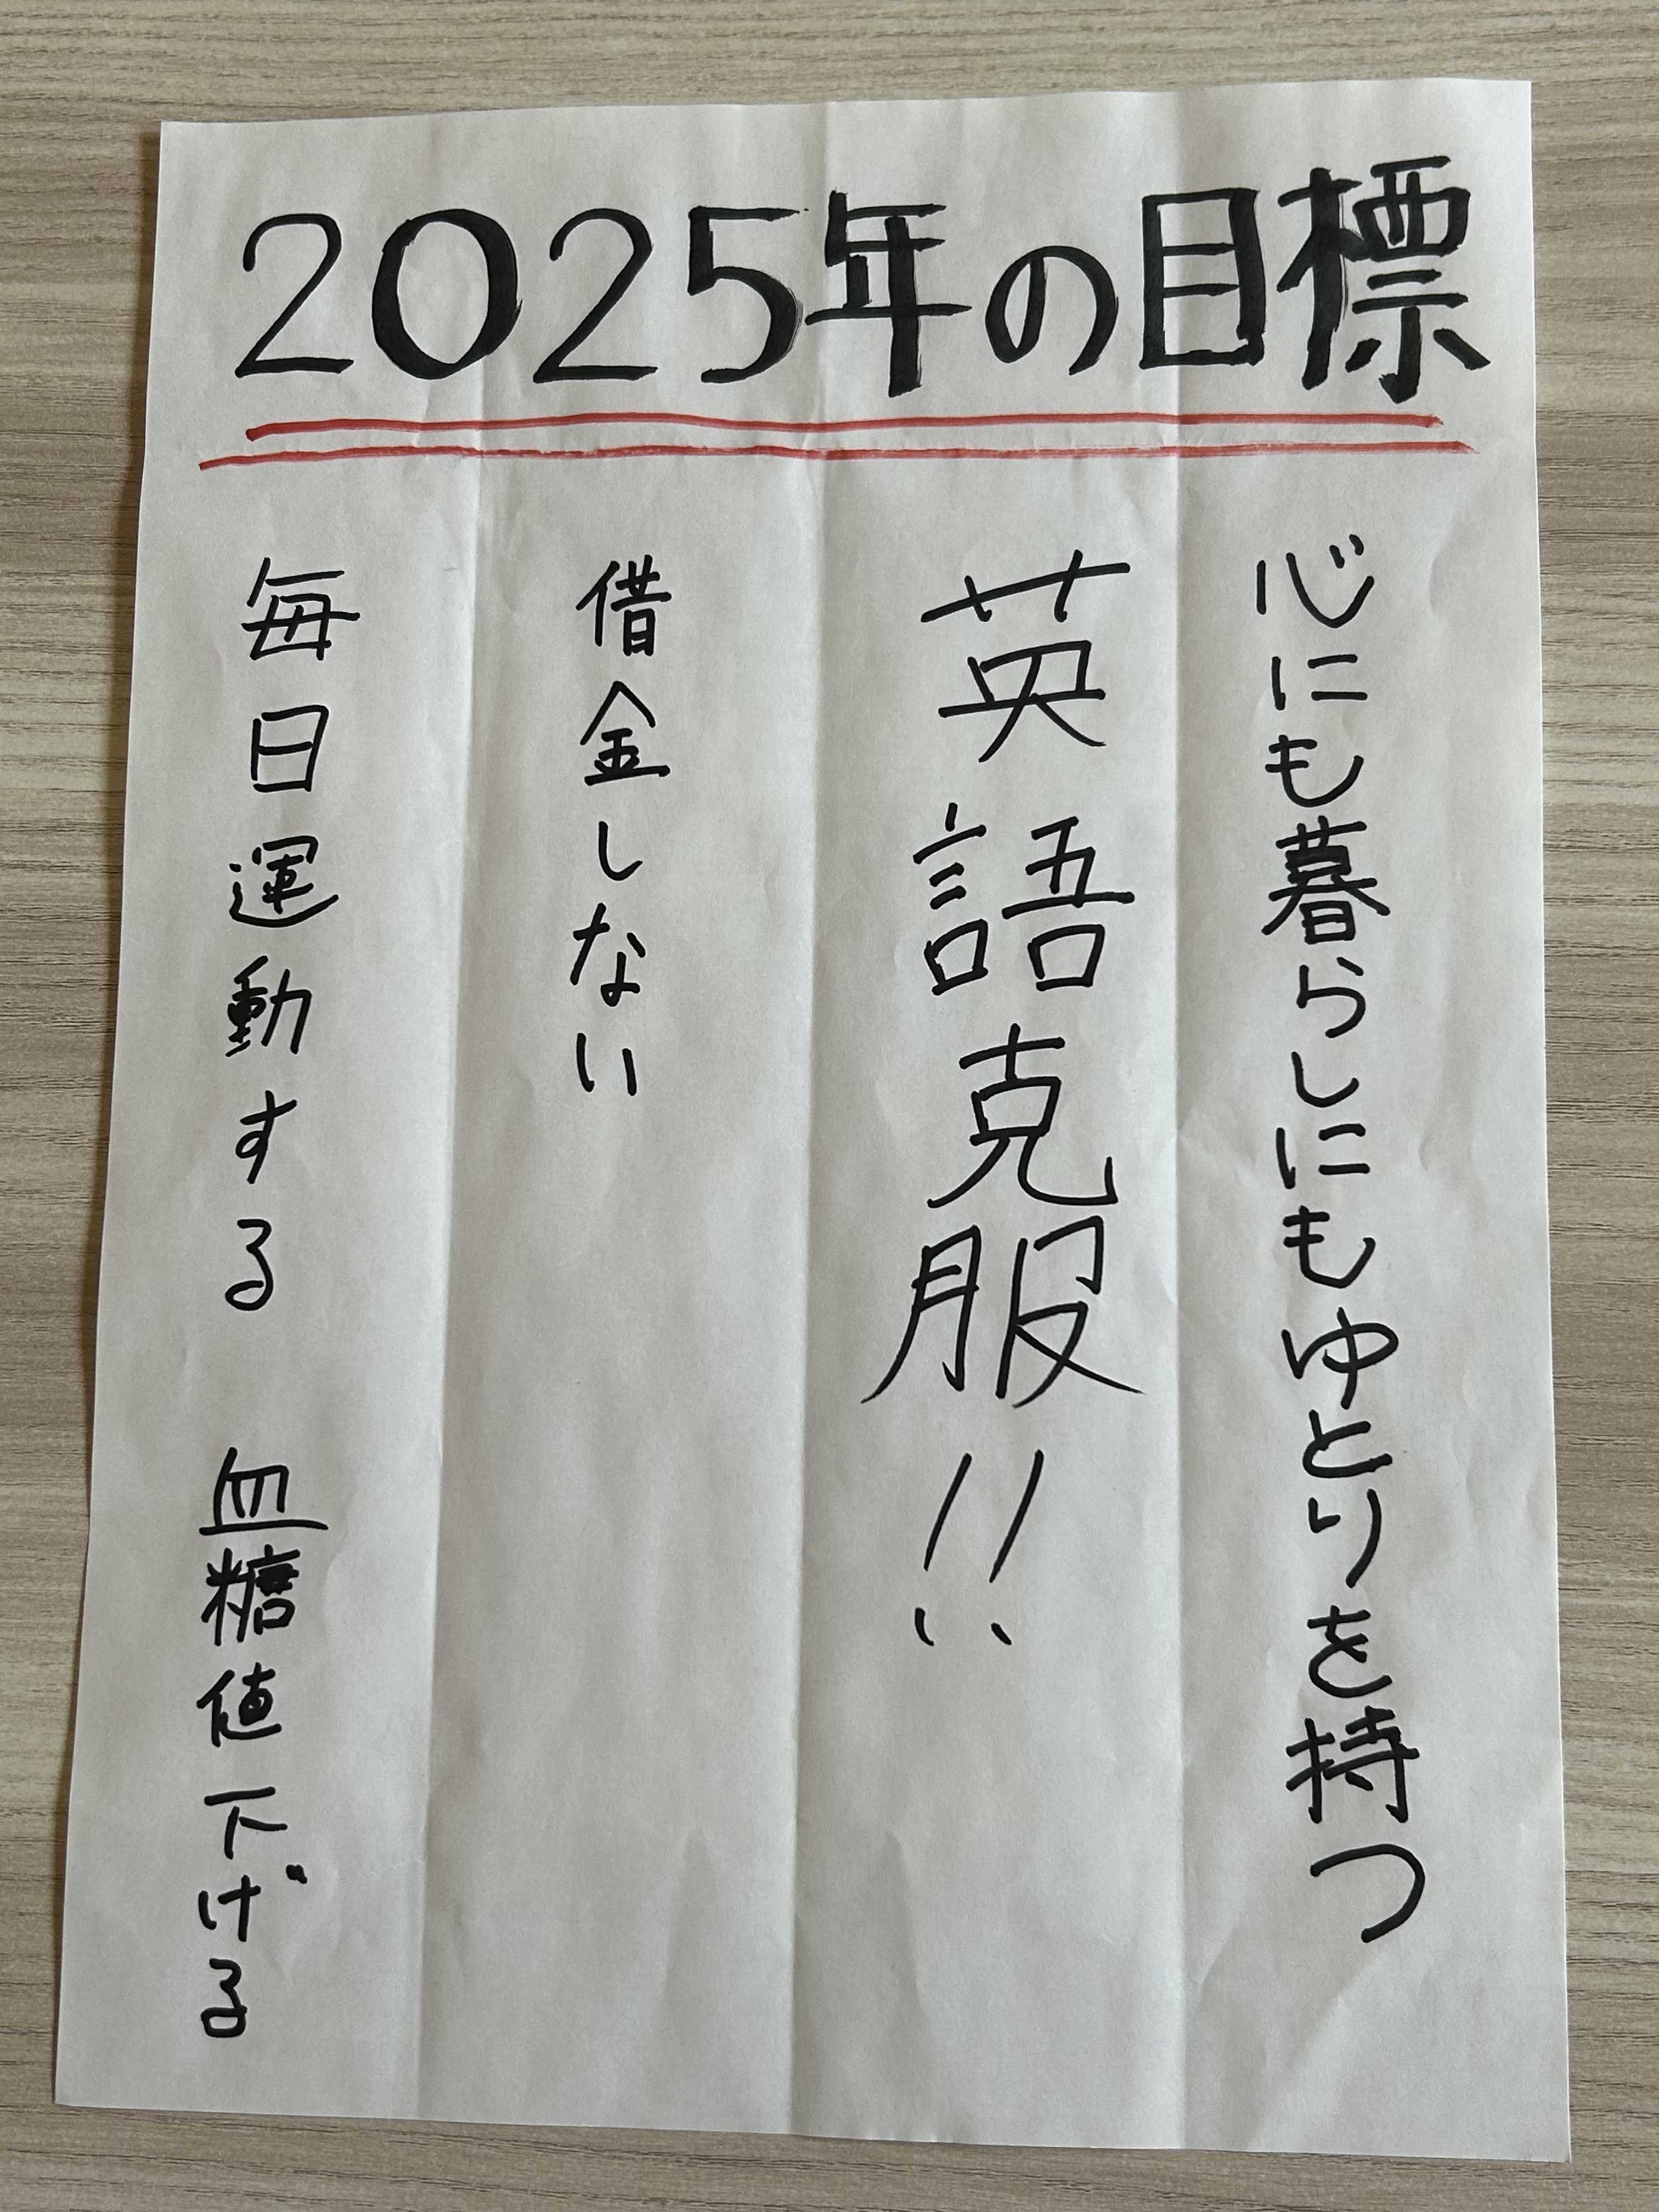 2025年の目標
心にも暮らしにもゆとりを持つ
英語克服!!
借金しない
毎日運動する 血糖値下げる